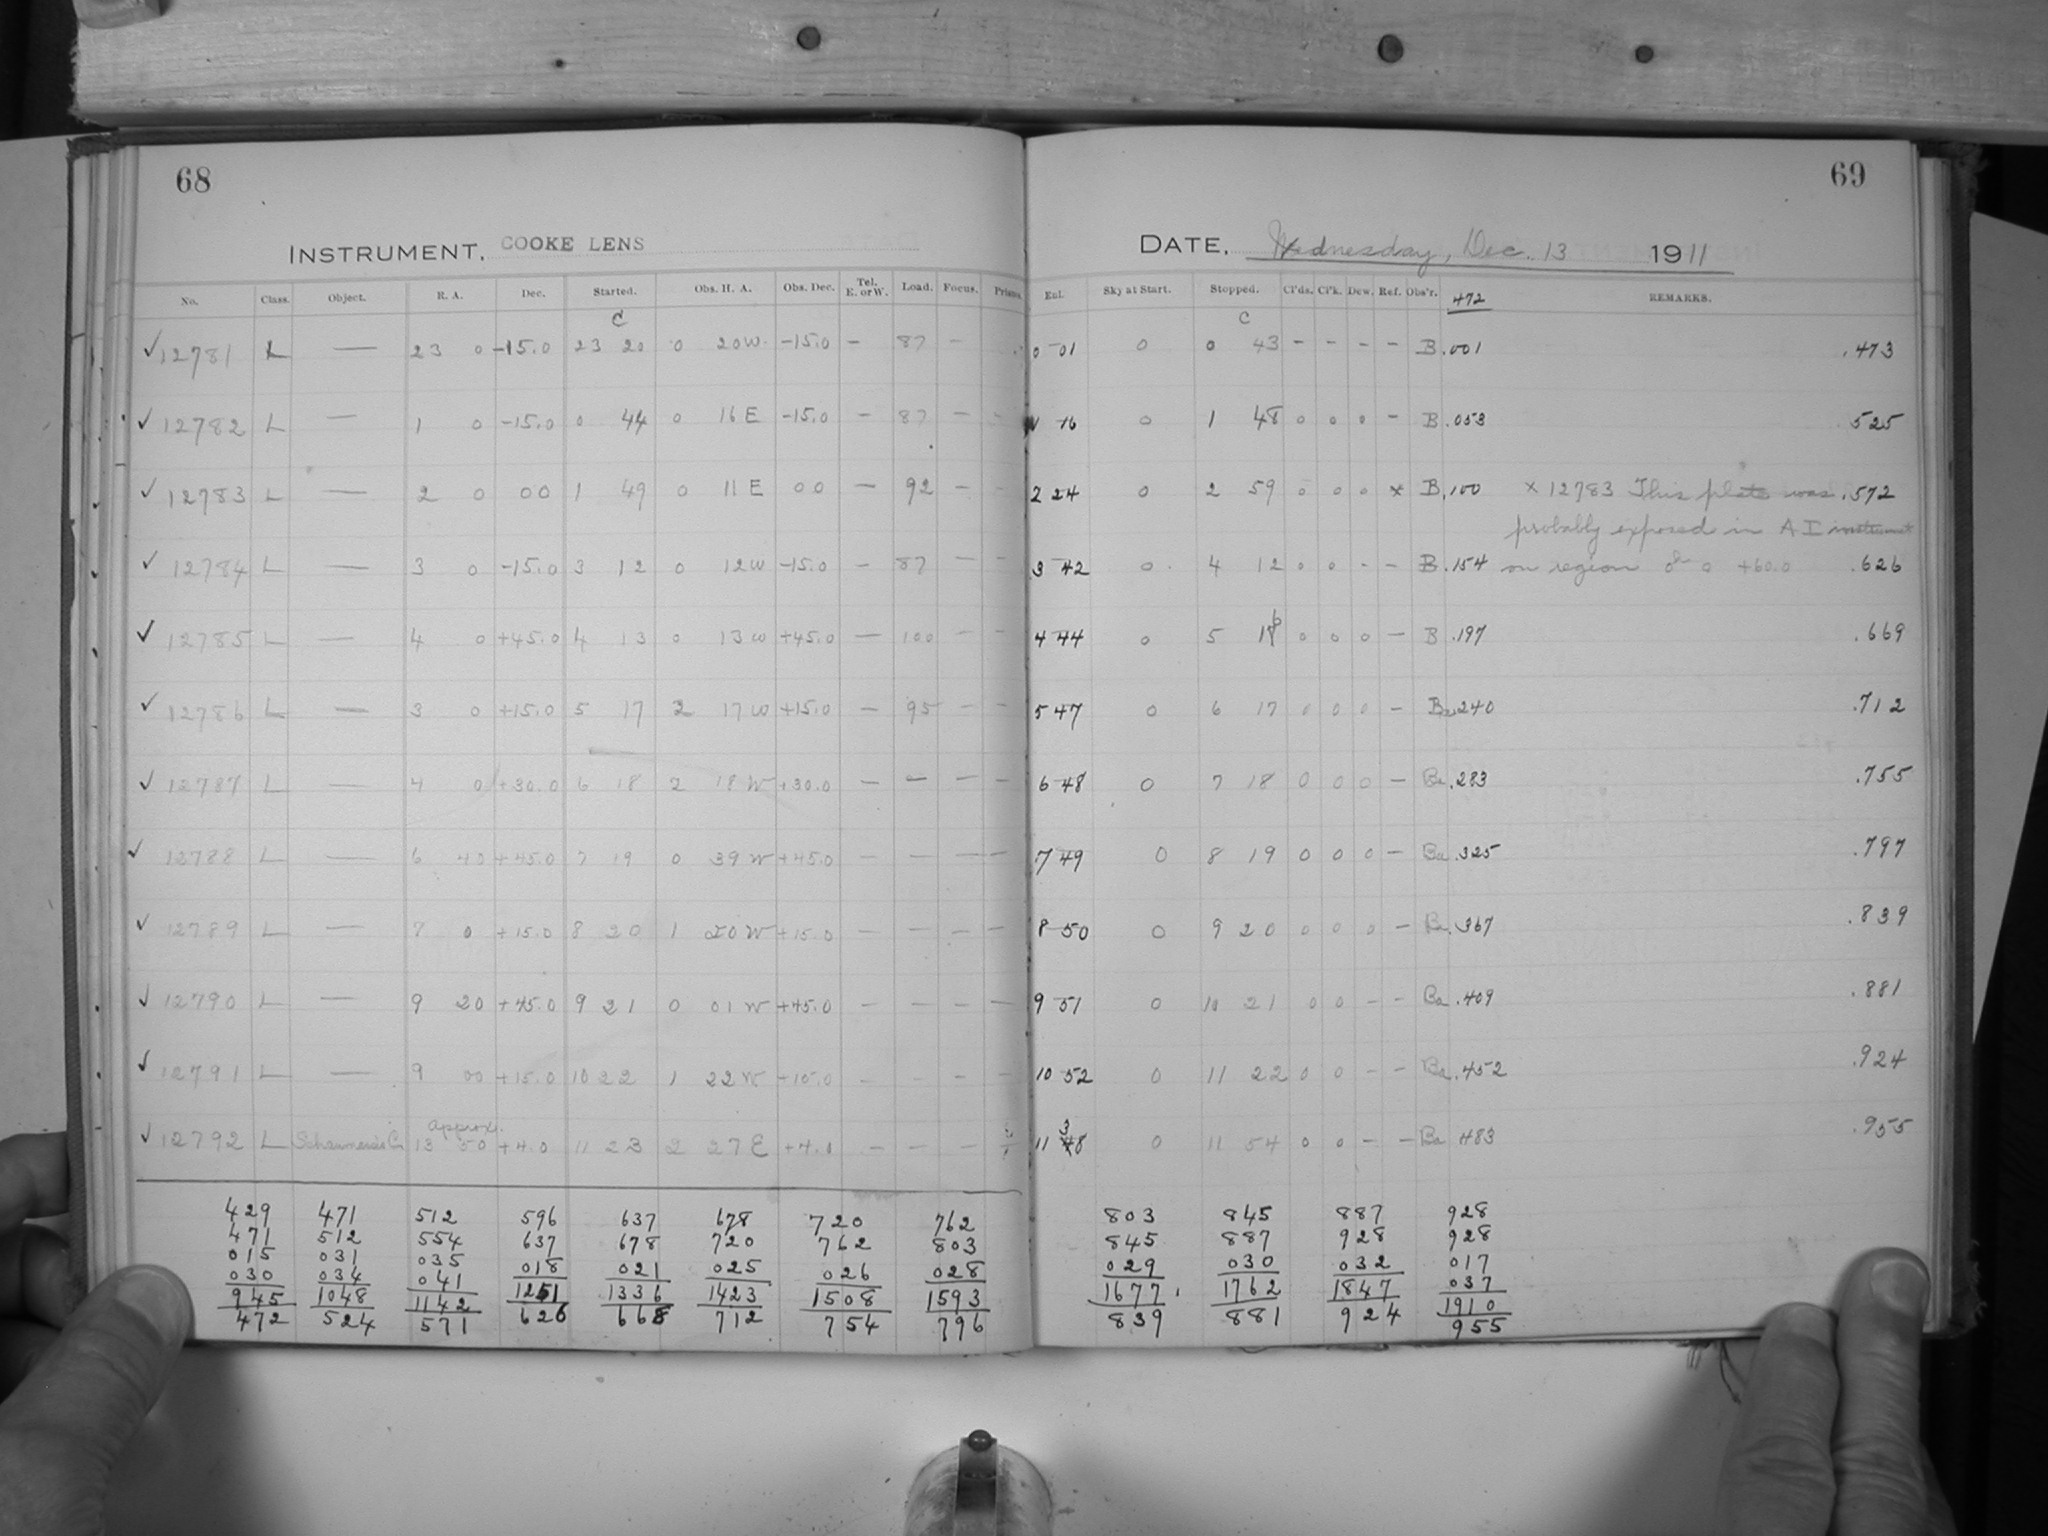 68
INSTRUMENT. COOKE LENS
No. Class. Object. R. A. Dec. Started. Obs. H. A. Obs. Dec. Tel. E. or W. Load. Focus. Prisms.
C
✓ 12781 L — 23 0 -15.0 23 20 0 20W -15.0 — 87 —
✓ 12782 L — 1 0 -15.0 0 44 0 16 E -15.0 — 87 — —
✓ 12783 L — 2 0 00 1 49 0 11 E 00 — 92 — —
✓ 12784 L — 3 0 -15.0 3 12 0 12W -15.0 — 87 — —
✓ 12785 L — 4 0 +45.0 4 13 0 13W +45.0 — 100 — —
✓ 12786 L — 3 0 +15.0 5 17 2 17W +15.0 — 95 — —
✓ 12787 L — 4 0 +30.0 6 18 2 18W +30.0 — — — —
✓ 12788 L — 6 40 +45.0 7 19 0 39W +45.0 — — — —
✓ 12789 L — 7 0 +15.0 8 20 1 20W +15.0 — — — —
✓ 12790 L — 9 20 +45.0 9 21 0 01W +45.0 — — — —
✓ 12791 L — 9 00 +15.0 10 22 1 22W +15.0 — — — —
approx.
✓ 12792 L 13 50 +4.0 11 23 2 27 E +4.0 — — —
429 471 512 596 637 678 720 762
471 512 554 637 678 720 762 803
015 031 035 018 021 025 026 028
030 034 041 1251 1336 1423 1508 1593
945 1048 1142 626 668 712 754 796
472 524 571
69
DATE. Wednesday, Dec. 13 1911
Exl. Sky at Start. Stopped. Cl'ds. Cl'k. Dew. Ref. Obs'r. .472 REMARKS.
C
0 01 0 0 43 — — — — B .001 .473
16 0 1 48 0 0 0 — B .053 .525
2 24 0 2 59 0 0 0 x B .100 x 12783 This plate was .572
probably exposed in A I instrument
3 42 0 4 12 0 0 — — B .154 on region 0 +60.0 .626
4 44 0 5 0 0 0 — B .197 .669
5 47 0 6 17 0 0 0 — Ba .240 .712
6 48 0 7 18 0 0 0 — Ba .283 .755
7 49 0 8 19 0 0 0 — Ba .325 .797
8 50 0 9 20 0 0 0 — Ba .367 .839
9 51 0 10 21 0 0 — — Ba .409 .881
10 52 0 11 22 0 0 — — Ba .452 .924
11 38 0 11 54 0 0 — — Ba .483 .955
803 845 887 928
845 887 928 928
029 030 032 017
1677 1762 1847 037
839 881 924 1910
955